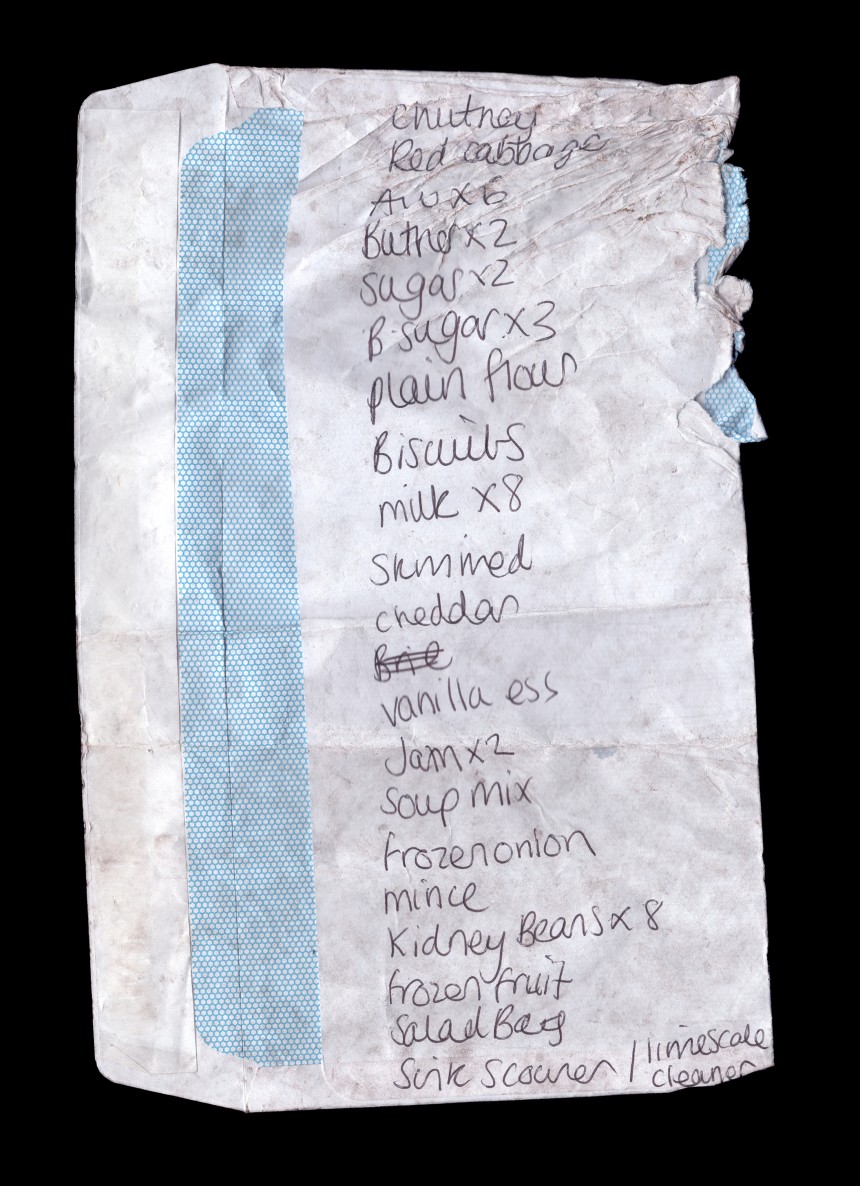 chutney
Red cabbage
x6
Butter x2
sugar x2
B.sugar x3
plain flour
Biscuits
milk x8
skimmed
cheddar
Brie
vanilla ess
Jam x2
soup mix
frozen onion
mince
Kidney Beans x 8
frozen fruit
salad Bag
Sink scourer / limescale
cleaner